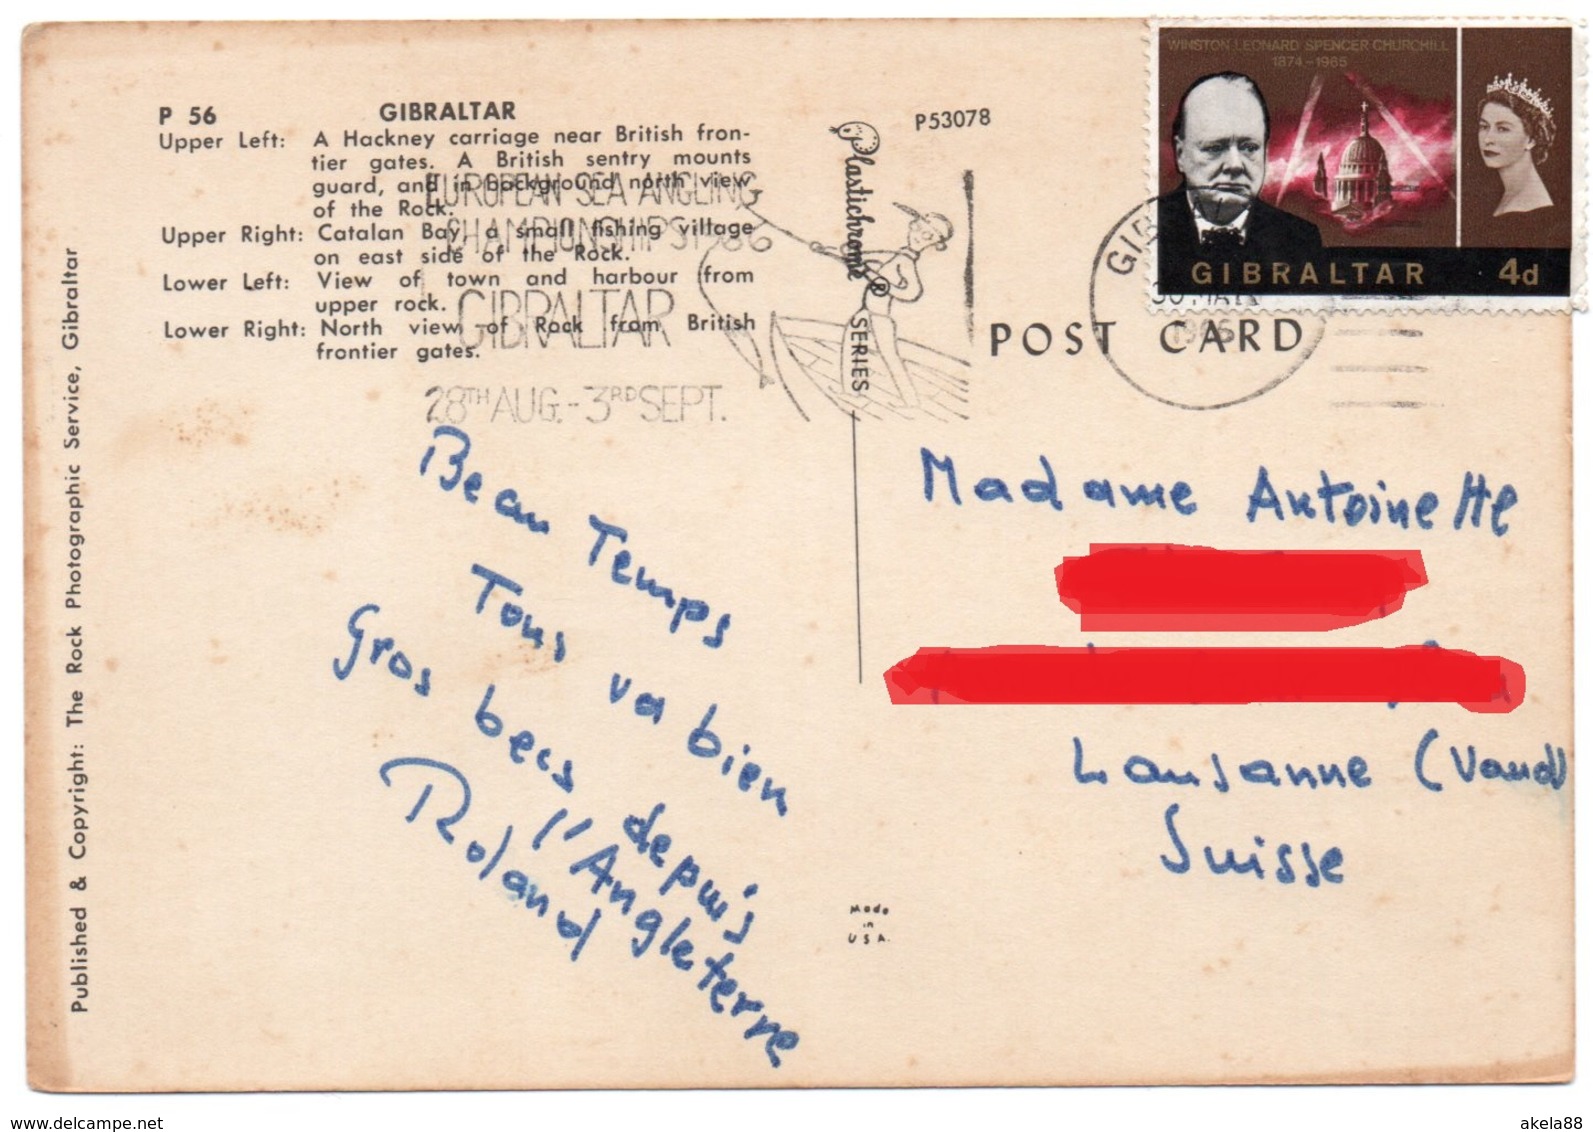 P 56 GIBRALTAR
Upper Left: A Hackney carriage near British fron-
tier gates. A British sentry mounts
guard, and in background north view
of the Rock.
Upper Right: Catalan Bay, a small fishing village
on east side of the Rock.
Lower Left: View of town and harbour from
upper rock.
Lower Right: North view of Rock from British
frontier gates.
EUROPEAN SEA ANGLING
CHAMPIONSHIPS 1966
GIBRALTAR
28TH AUG. - 3RD SEPT.
Published & Copyright: The Rock Photographic Service, Gibraltar
Plastichrome® SERIES
P53078
WINSTON LEONARD SPENCER CHURCHILL
1874-1965
GIBRALTAR 4d
GIB
1966
POST CARD
Beau Temps
Tous va bien
Gros becs depuis
l'Angleterre
Roland
Madame Antoinette
Lausanne (Vaud)
Suisse
Made
in
U S A.
www.delcampe.net
akela88